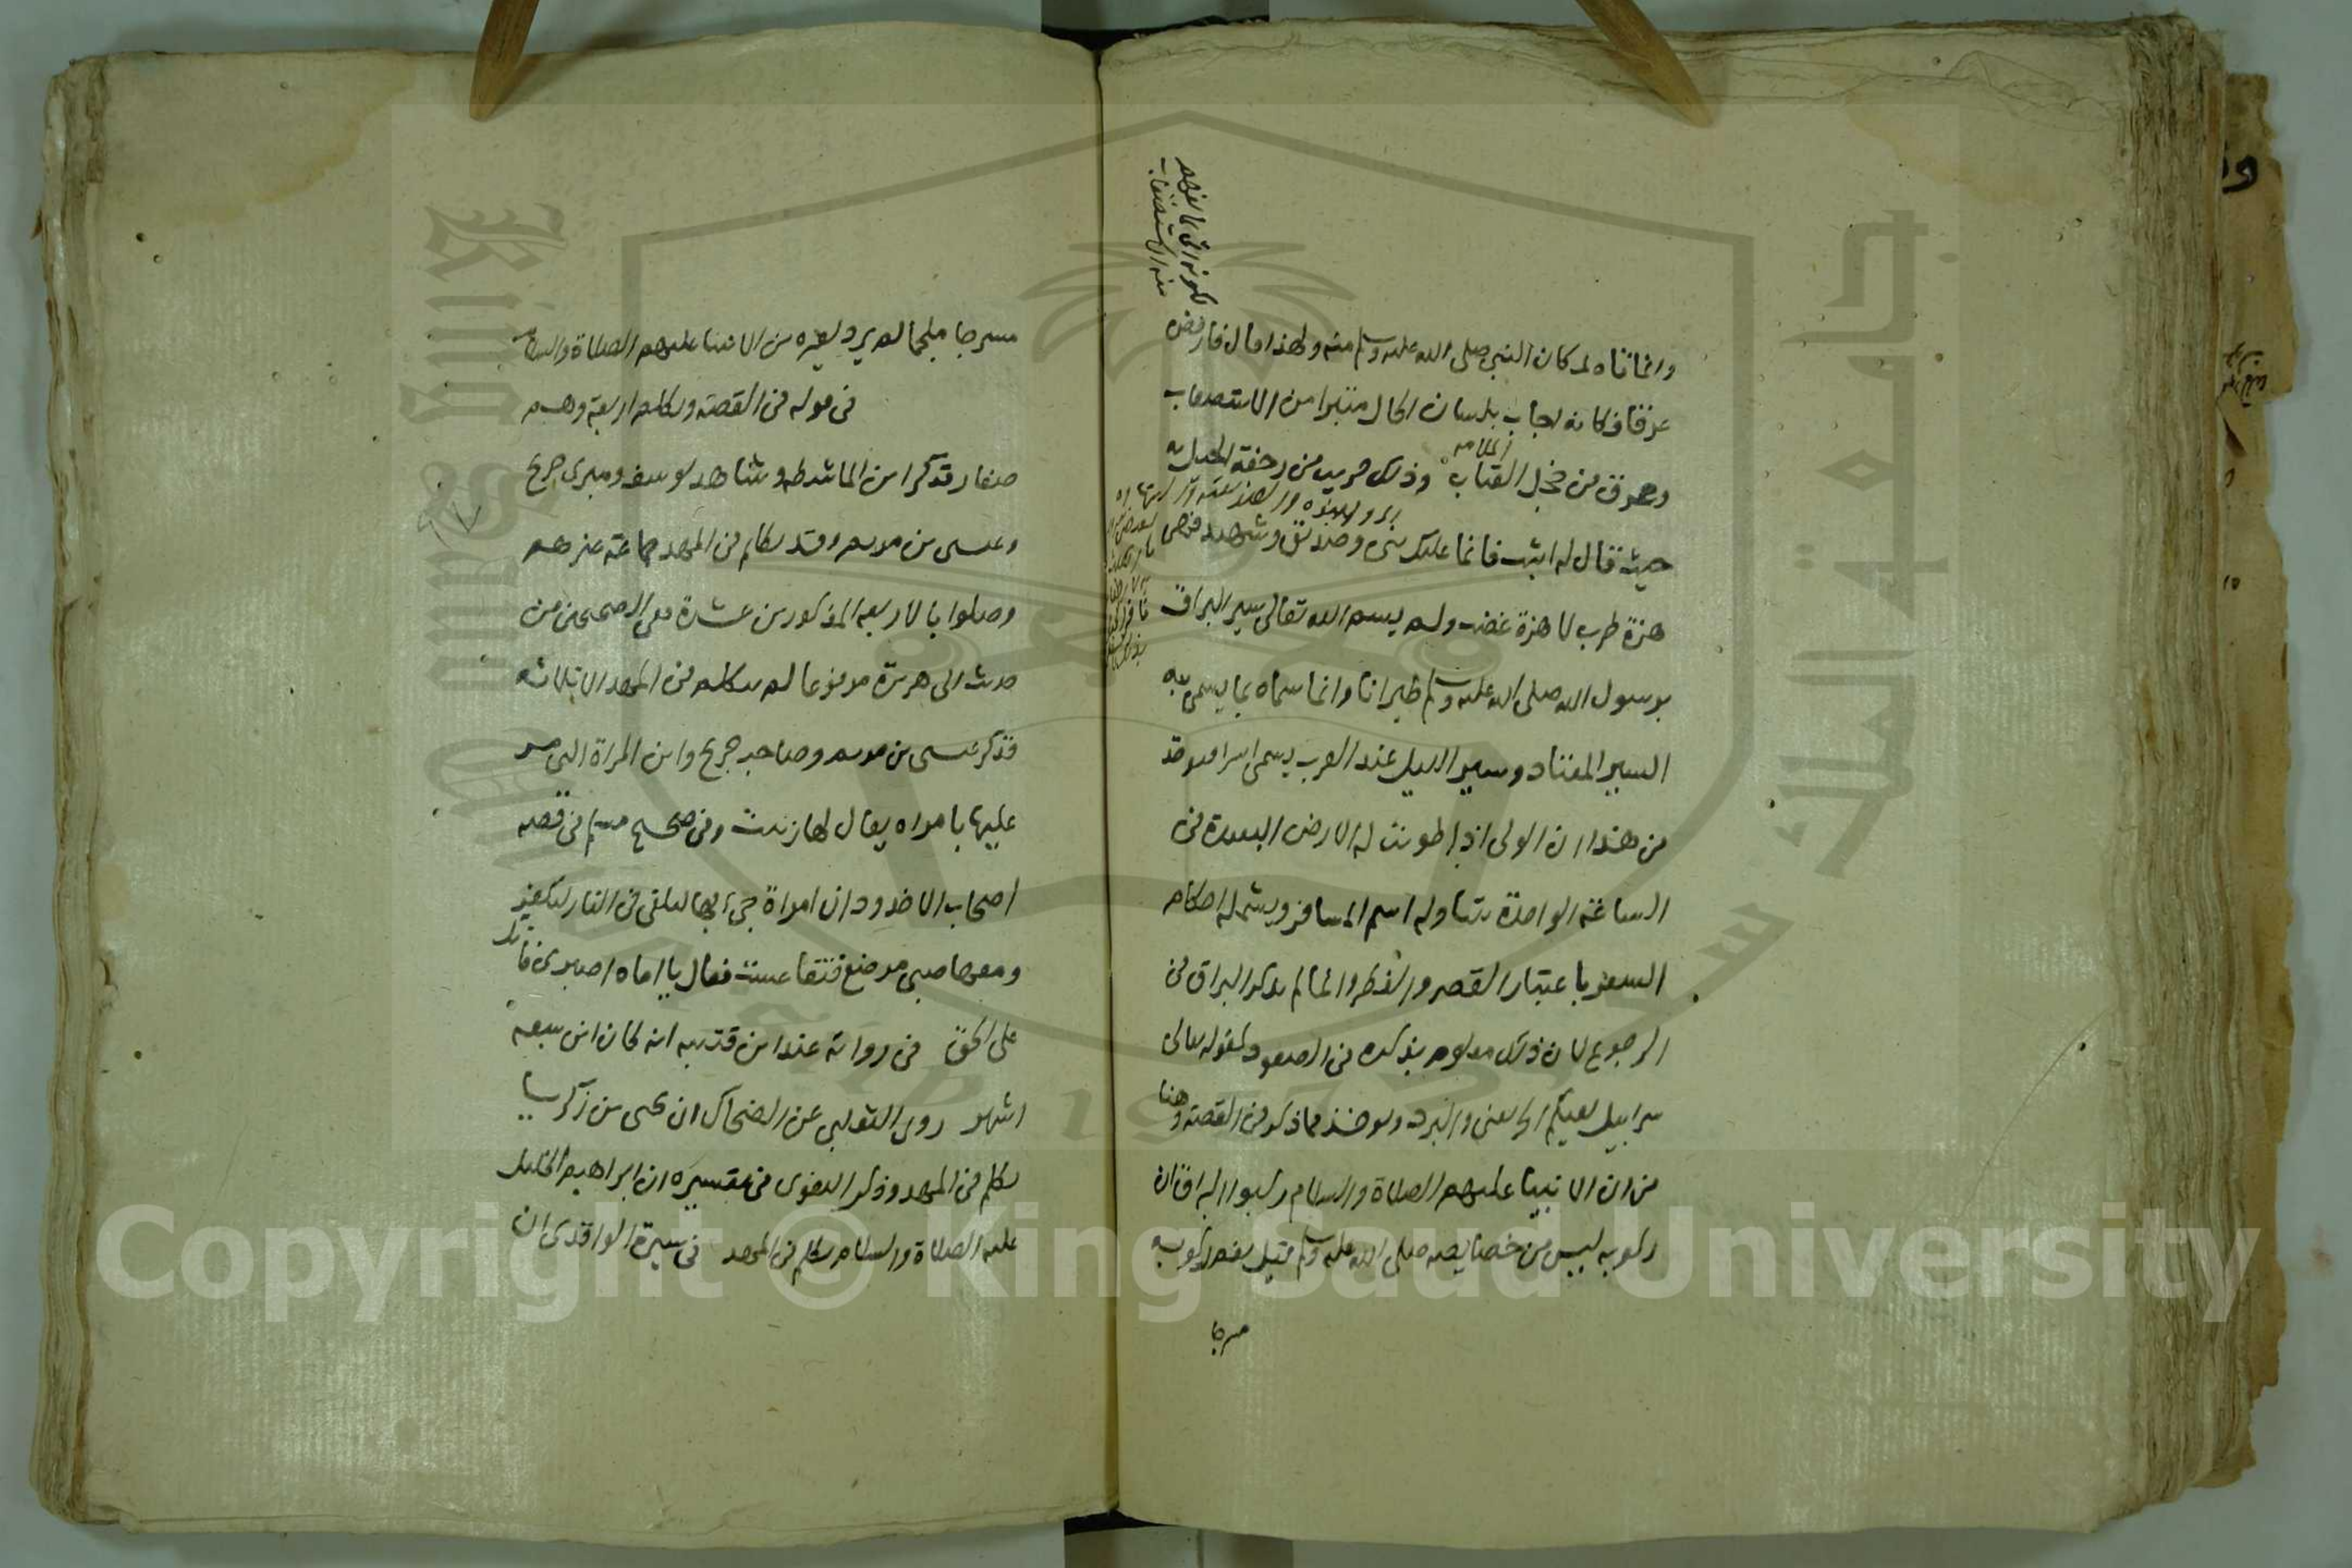 وانما تاه لمكان النبي صلى الله عليه وسلم منه ولهذا قال فارفض
عرقا فكانه اجاب بلسان الحال متبرا من الاستصعاب
وعرق من خجل العتاب وذلك قريب من رجفة الجبل به
حيث قال له اثبت فانما عليك نبي وصديق وشهيد
هزة طرب لا هزة غضب ولم يسم الله تعالى سير البراق
برسول الله صلى الله عليه وسلم طيرانا وانما سماه بما يسمى به
السير المعتاد وسير الليل عند العرب يسمى اسرا
من هذا ان الولي اذا طويت له الارض البعيدة في
الساعة الواحدة يتناوله اسم المسافر ويشمله احكام
السفر باعتبار القصر والفطر وانما لم يذكر البراق في
الرجوع لان ذلك معلوم بذكره في الصعود كقوله تعالى
سرابيل تقيكم الحر يعني والبرد ويؤخذ مما ذكر في القصة وهنا
من ان الانبيا عليهم الصلاة والسلام ركبوا البراق ان
ركوبه ليس من خصايصه صلى الله عليه وسلم قيل نعم ركوبه
مسرجا
مسرجا ملجما لم يرد لغيره من الانبيا عليهم الصلاة والسلام
في قوله في القصة وتكلم اربعة وهم
صغار فذكر ابن الماشطة وشاهد يوسف ومبرى جريج
وعيسى بن مريم وقد تكلم في المهد جماعة غيرهم
وصلوا بالاربعة المذكورين عشرة ففي الصحيحين من
حديث ابي هريرة مرفوعا لم يتكلم في المهد الا ثلاثة
فذكر عيسى بن مريم وصاحب جريج وابن المراة التي مر
عليها بامراة يقال لها زنيت وفي صحيح مسلم في قصة
اصحاب الاخدود ان امراة جيء بها لتلقى في النار لتكفر
ومعها صبي مرضع فتقاعست فقال يا اماه اصبري فانك
على الحق في رواية عند ابن قتيبه انه كان ابن سبعه
اشهر روى الثعلبي عن الضحاك ان يحيى بن زكريا
تكلم في المهد وذكر البغوي في تفسيره ان ابراهيم الخليل
عليه الصلاة والسلام تكلم في المهد في سيرة الواقدي ان
Copyright © King Saud University